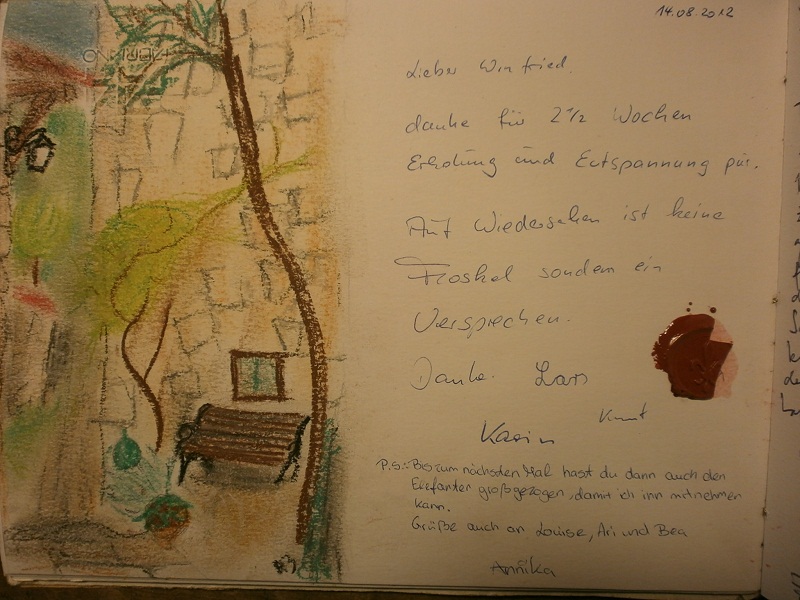 14.08.2012
Lieber Winfried,
danke für 2 1/2 Wochen
Erholung und Entspannung pur.
Auf Wiedersehen ist keine
Floskel sondern ein
Versprechen.
Danke. Lars
Knut
Karin
P.S.: Bis zum nächsten Mal hast du dann auch den
Elefanten großgezogen, damit ich ihn mitnehmen
kann.
Grüße auch an Louise, Ari und Bea
Annika